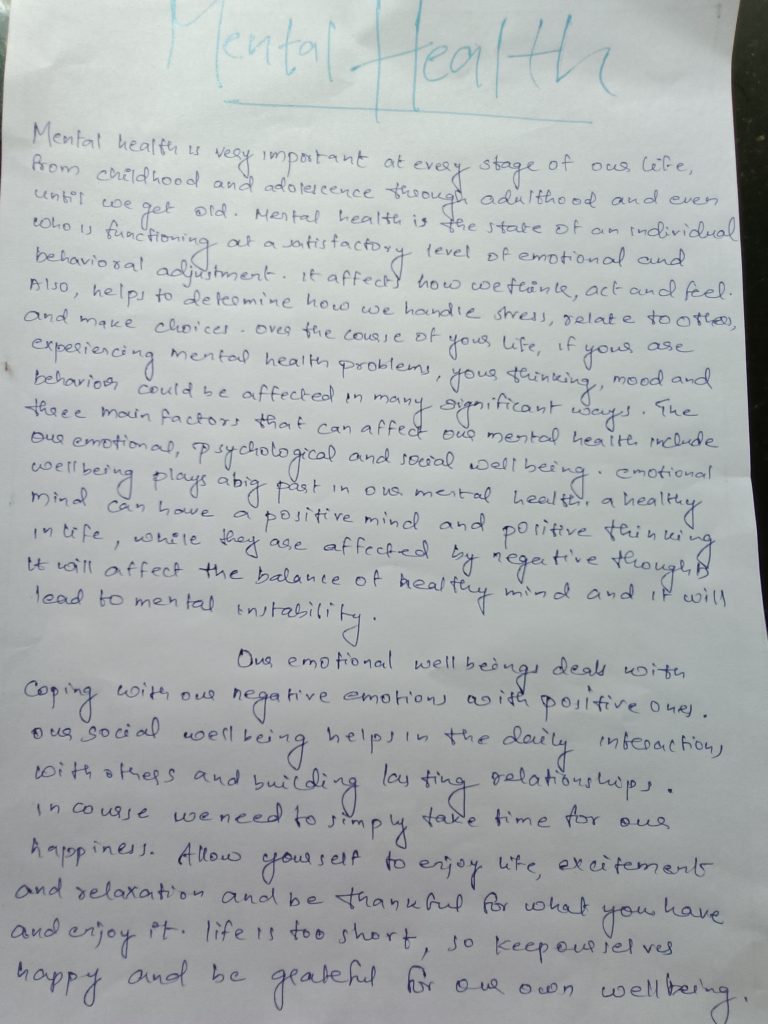 Mental Health
Mental health is very important at every stage of our life,
from childhood and adolescence through adulthood and even
until we get old. Mental health is the state of an individual
who is functioning at a satisfactory level of emotional and
behavioral adjustment. it affects how we think, act and feel.
Also, helps to determine how we handle stress, relate to others,
and make choices. over the course of your life, if your are
experiencing mental health problems, your thinking, mood and
behavior could be affected in many significant ways. The
three main factors that can affect our mental health include
our emotional, psychological and social well being. emotional
well being plays a big part in our mental health. a healthy
mind can have a positive mind and positive thinking
in life, while they are affected by negative thoughts
it will affect the balance of healthy mind and it will
lead to mental instability.
Our emotional well beings deals with
coping with our negative emotions with positive ones.
our social well being helps in the daily interactions
with others and building lasting relationships.
in course we need to simply take time for our
happiness. Allow yourself to enjoy life, excitement
and relaxation and be thankful for what you have
and enjoy it. life is too short, so keep ourselves
happy and be grateful for our own wellbeing.